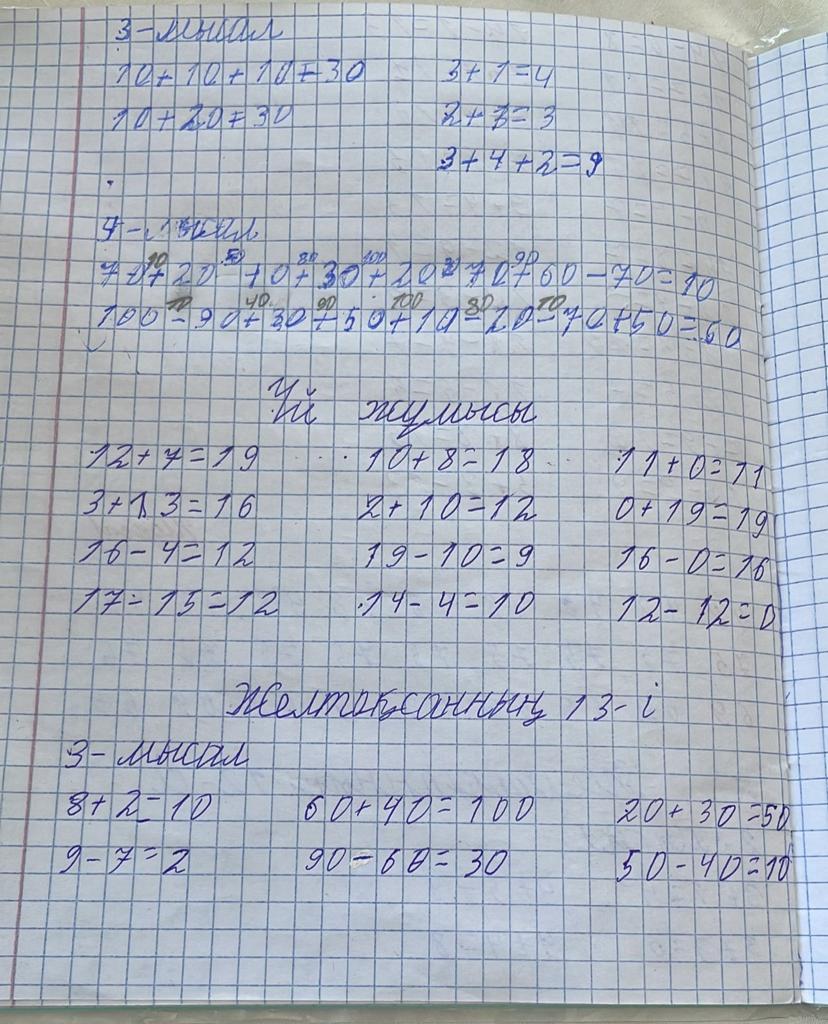 3-мысал
10+10+10=30 3+1=4
10+20=30 2+3=3
3+4+2=9
4-мысал
10 50 80 100 90
70+20 10+30+20 70+60-70=10
10 40 90 100 80 10
100-90+30+50+10-20-70+50=60
Үй жұмысы
12+7=19 10+8=18 11+0=11
3+13=16 2+10=12 0+19=19
16-4=12 19-10=9 16-0=16
17-15=12 14-4=10 12-12=0
Желтоқсанның 13-і
3-мысал
8+2=10 60+40=100 20+30=50
9-7=2 90-60=30 50-40=10